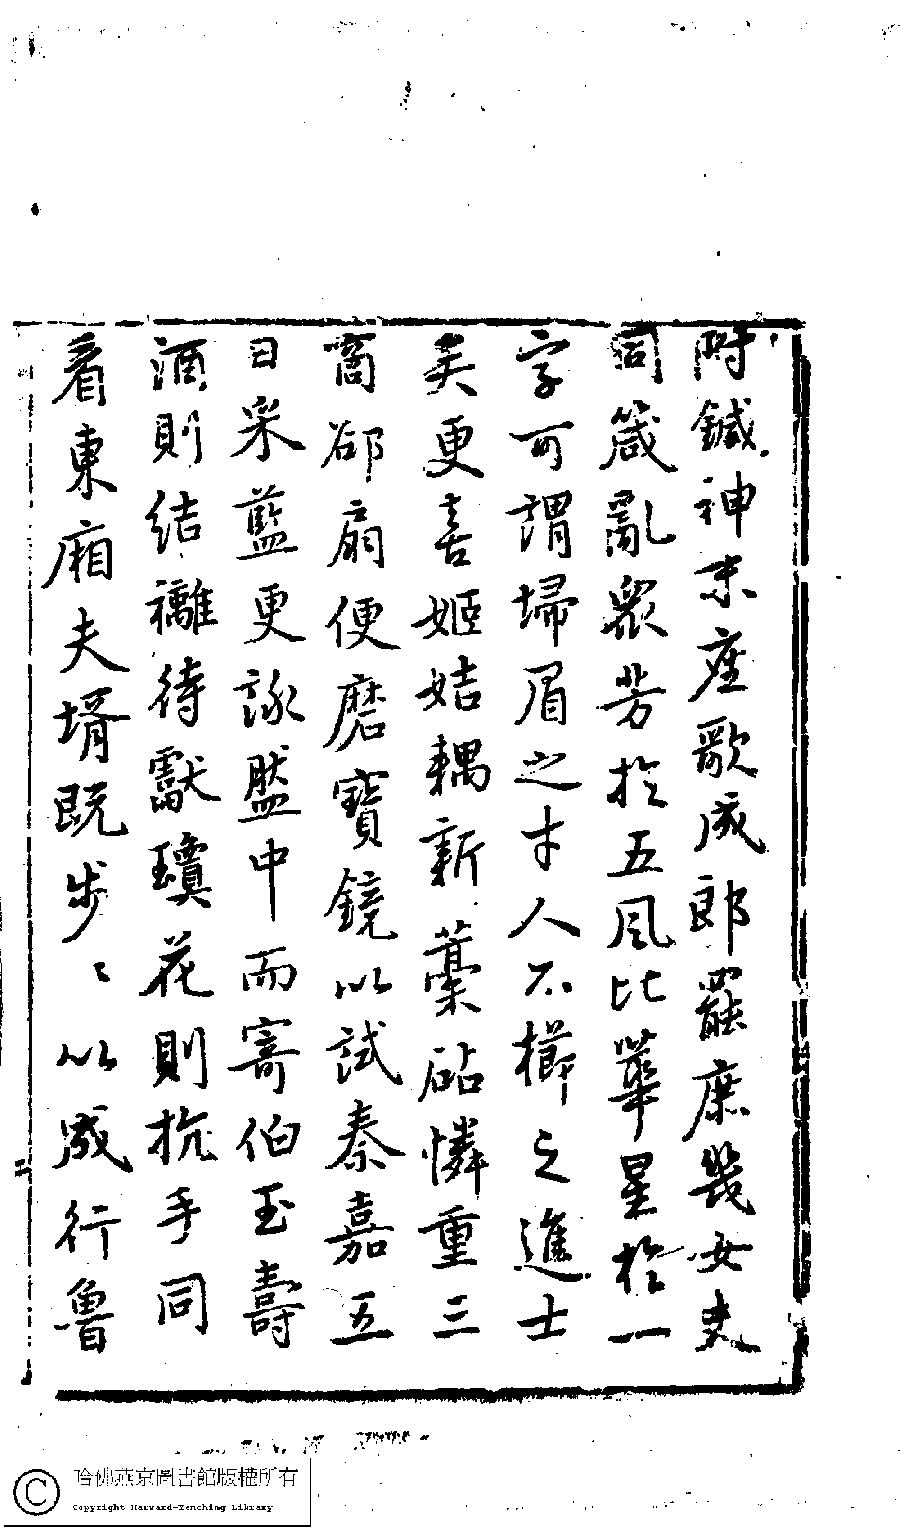 附鍼神末座歌成郎罷庶幾女史
同箴亂衆芳於五風比華星於一
字可謂埽眉之才人不櫛之進士
矣更喜姬姞耦新藁砧憐重三
商郤扇便磨寶鏡以試秦嘉五
日采藍更詠盤中而寄伯玉壽
酒則結褵待獻瓊花則抗手同
看東廂夫壻既步〻以成行魯
哈佛燕京圖書館版權所有
Copyright Harvard-Yenching Library